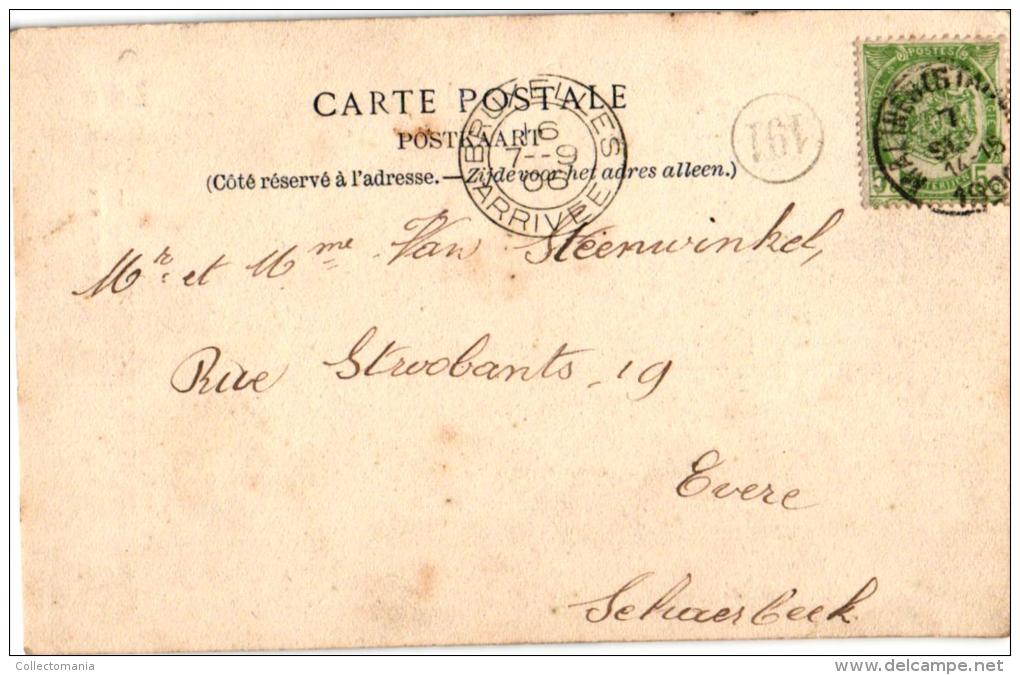 CARTE POSTALE
POSTKAART
(Côté réservé à l'adresse.—Zijde voor het adres alleen.)
BRUXELLES
16
7--9
06
ARRIVÉE
191
POSTES
14-15
5
Mr. et Mme Van Steenwinkel,
Rue Stroobants - 19
Evere
Schaerbeek
Collectomania
www.delcampe.net